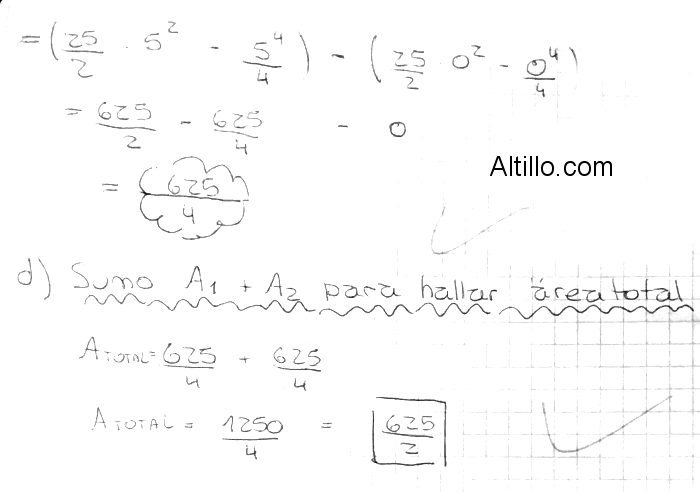 = (25/2 · 5² - 5⁴/4) - (25/2 · 0² - 0⁴/4)
= 625/2 - 625/4 - 0
Altillo.com
= 625/4
d) Sumo A₁ + A₂ para hallar área total
A TOTAL = 625/4 + 625/4
A TOTAL = 1250/4 = 625/2